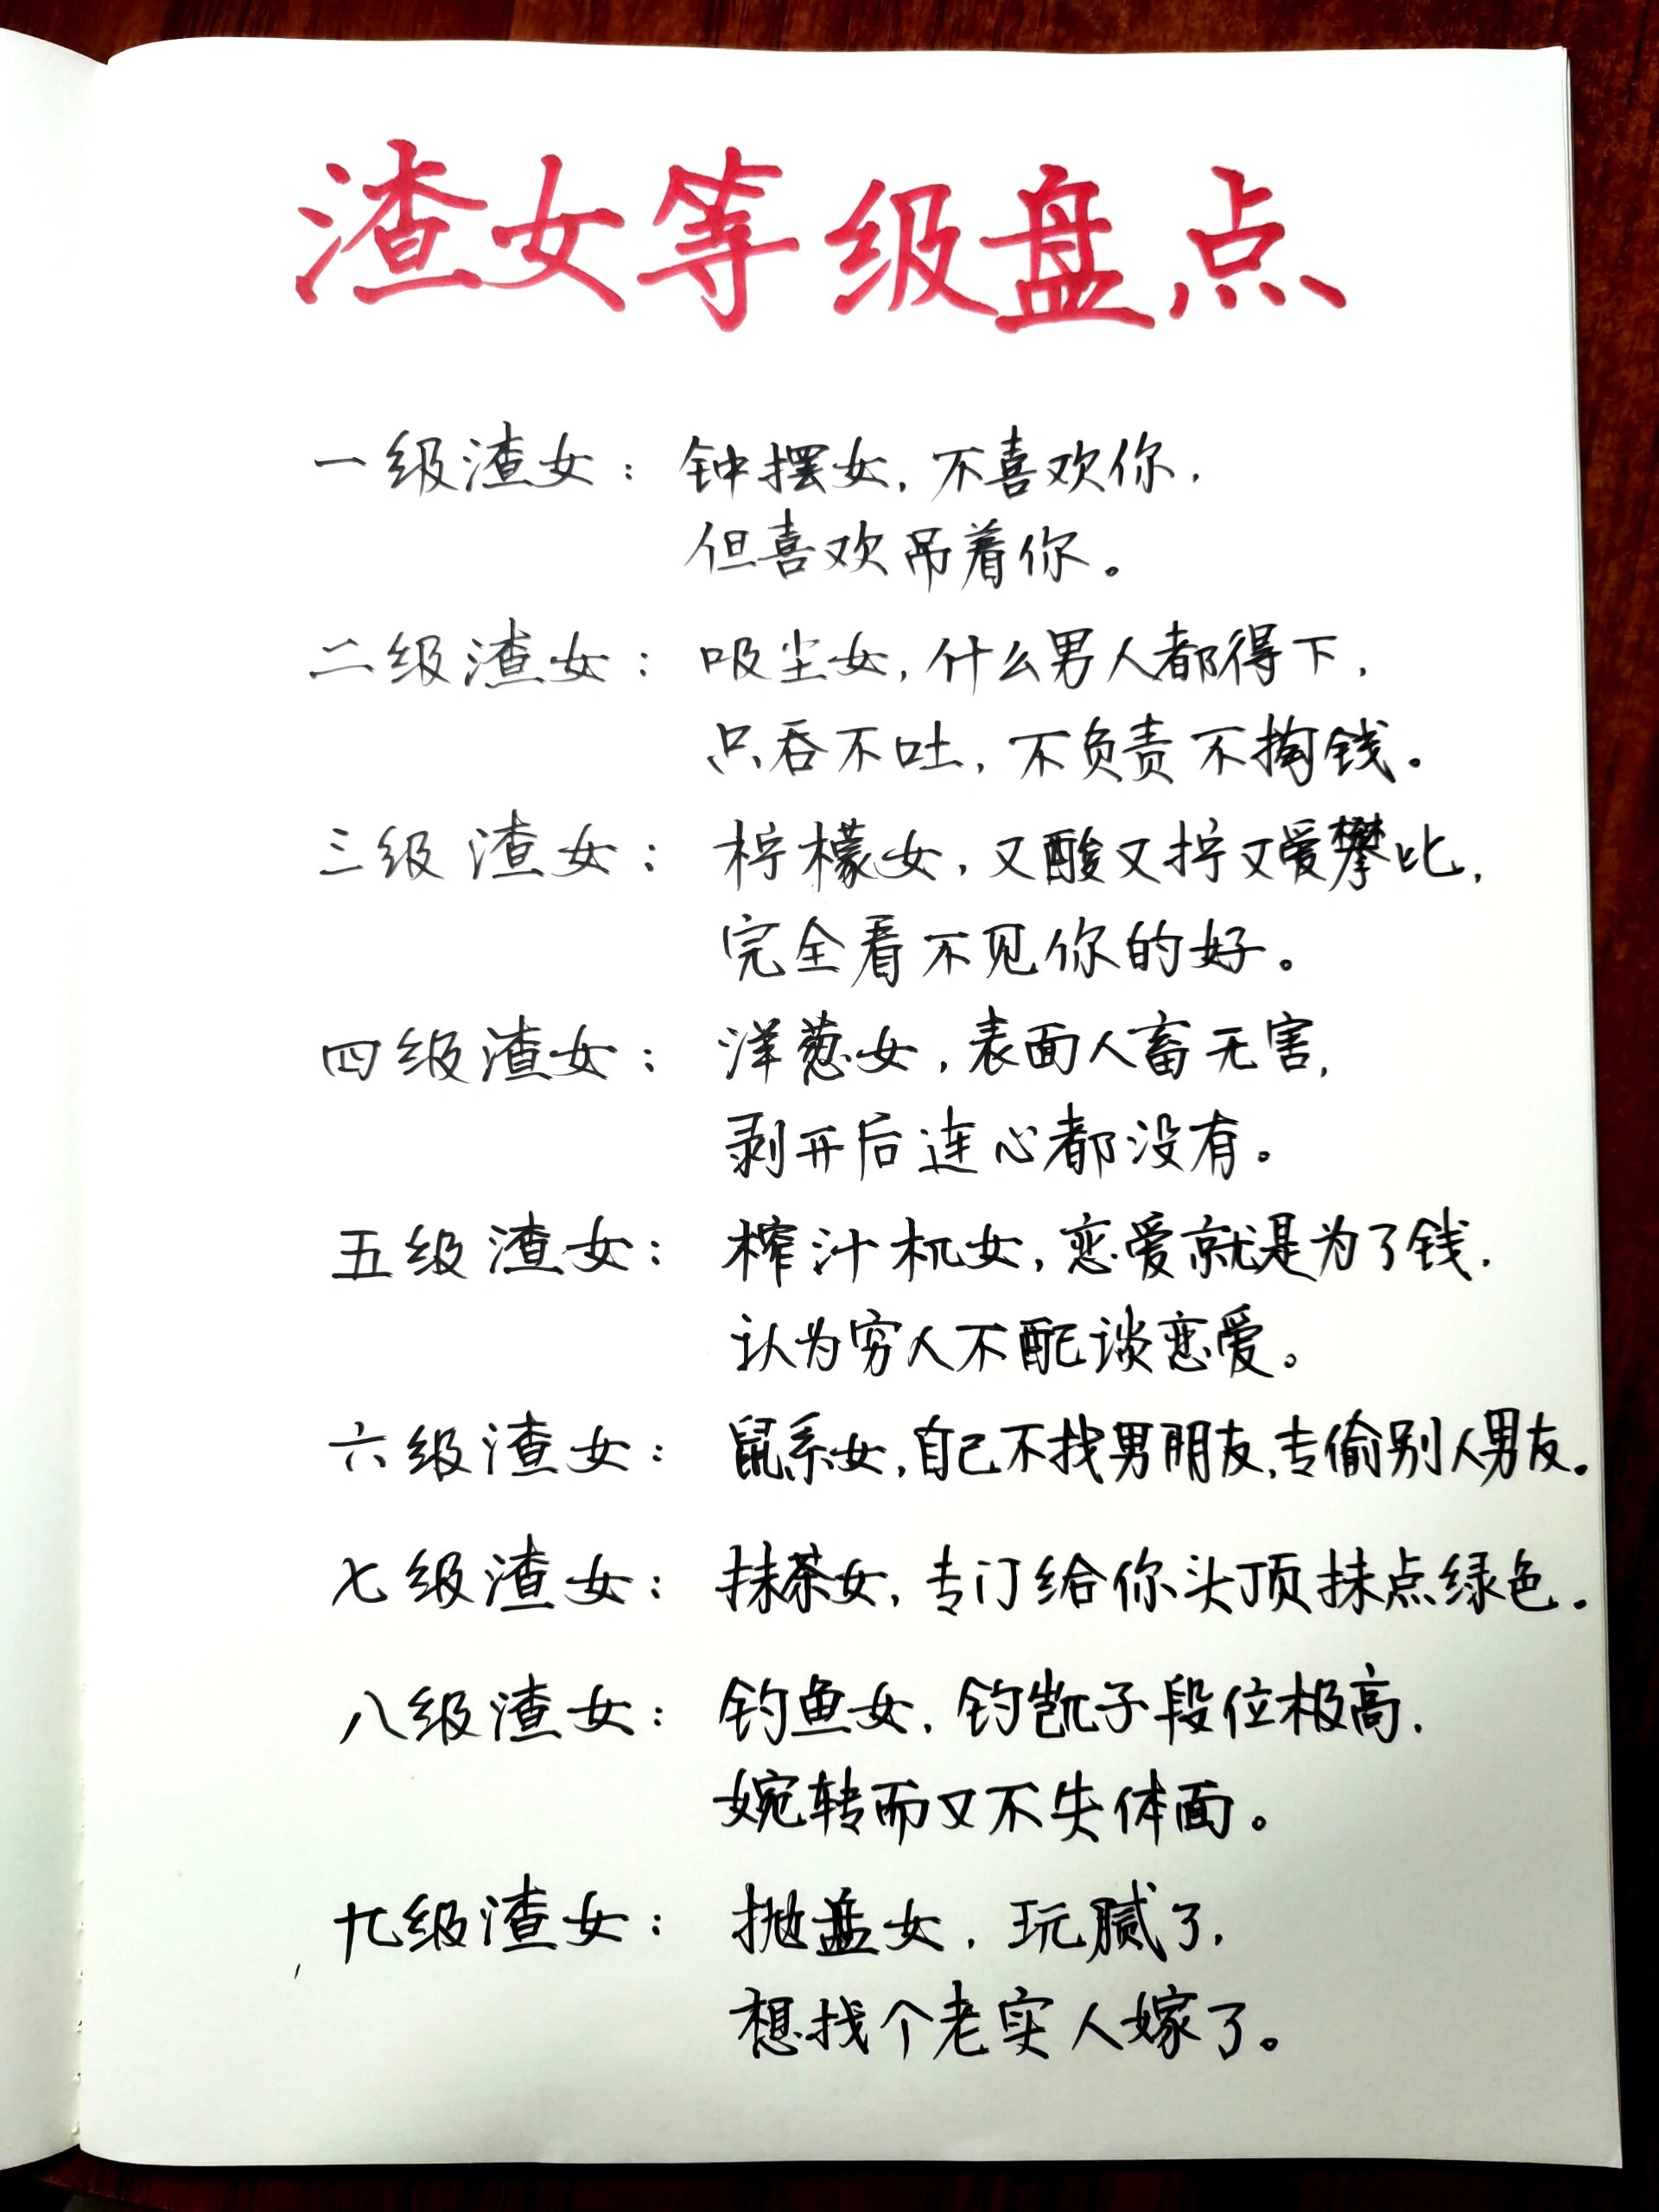 渣女等级盘点
一级渣女：钟摆女，不喜欢你，
但喜欢吊着你。
二级渣女：吸尘女，什么男人都得下，
只吞不吐，不负责不掏钱。
三级渣女：柠檬女，又酸又拧又爱攀比，
完全看不见你的好。
四级渣女：洋葱女，表面人畜无害，
剥开后连心都没有。
五级渣女：榨汁机女，恋爱就是为了钱，
认为穷人不配谈恋爱。
六级渣女：鼠系女，自己不找男朋友，专偷别人男友。
七级渣女：抹茶女，专门给你头顶抹点绿色。
八级渣女：钓鱼女，钓凯子段位极高，
婉转而又不失体面。
九级渣女：抛盖女，玩腻了，
想找个老实人嫁了。